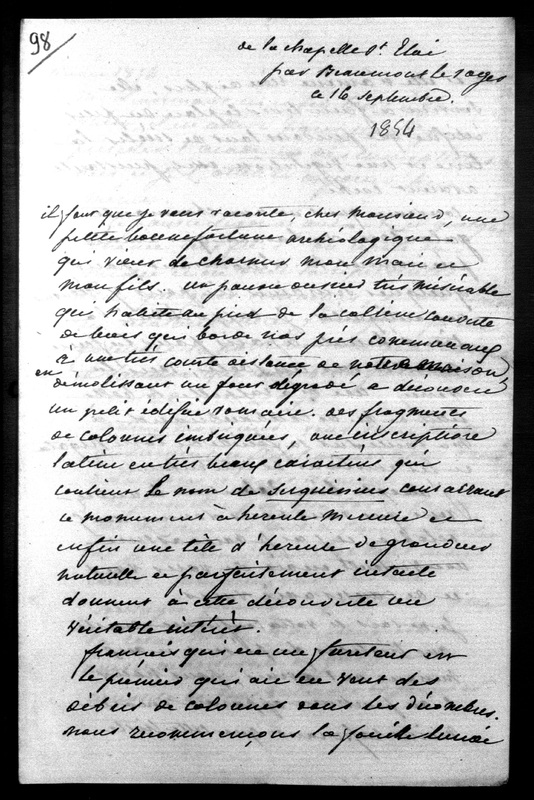 98
de la chapelle St Eloi
par Beaumont le roger
ce 16 septembre.
1854
il faut que je vous raconte, cher Monsieur, une
petite bonne fortune archéologique
qui vient de charmer mon mari et
mon fils. un pauvre ouvrier très misérable
qui habite au pied de la colline couverte
de bois qui borde nos prés communaux
à une très courte distance de notre maison
en démolissant un four dégradé a découvert
un petit édifice romain. des fragments
de colonnes imbriquées, une inscription
latine en très beaux caractères qui
contient le nom de consacrant
ce monument à hercule mercure et
enfin une tête d'hercule de grandeur
naturelle et parfaitement intacte
donnent à cette découverte un
véritable intérêt.
françois qui est un fureteur est
le premier qui ait eu vent des
débris de colonnes dans les décombres.
nous recommençons la fouille lundi